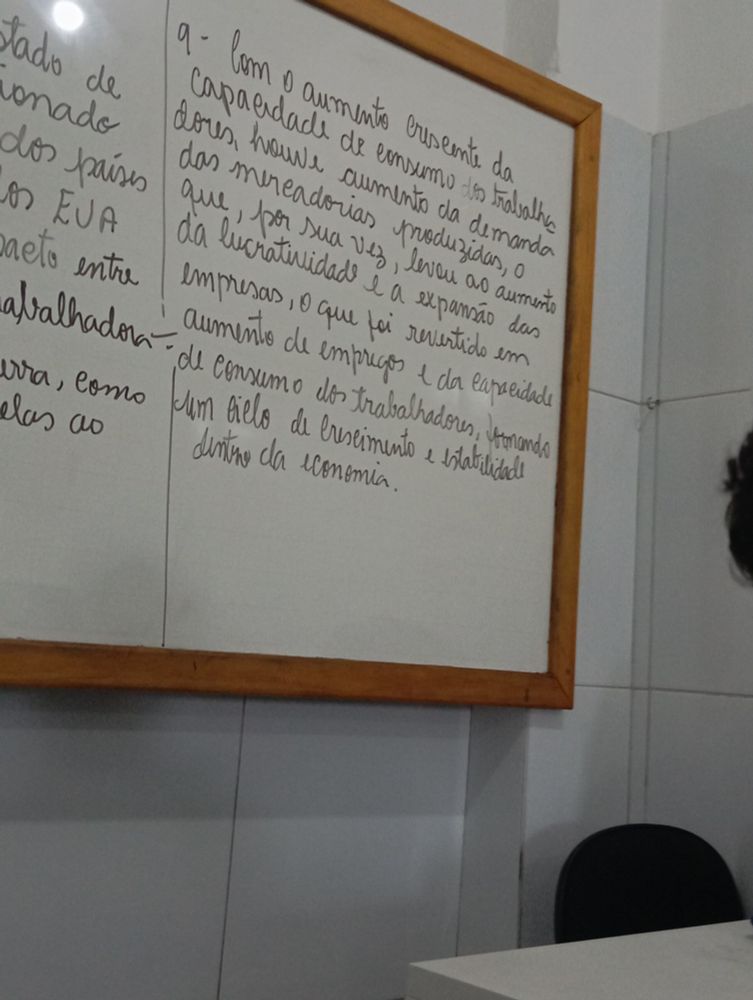 stado de
ionado
dos países
los EUA
pacto entre
trabalhadora
erra, como
elas ao
9- Com o aumento crescente da
capacidade de consumo dos trabalha
dores, houve aumento da demanda
das mercadorias produzidas, o
que, por sua vez, levou ao aumento
da lucratividade e a expansão das
empresas, o que foi revertido em
aumento de empregos e da capacidade
de consumo dos trabalhadores, formando
um ciclo de crescimento e estabilidade
dentro da economia.